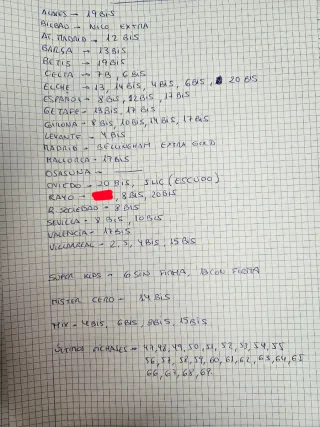 ALAVES - 19 BIS
BILBAO - NICO EXTRA
AT. MADRID - 12 BIS
BARSA - 13 BIS
BETIS - 19 BIS
CELTA - 7B, 6 BIS
ELCHE - 13, 14 BIS, 4 BIS, 6 BIS, 20 BIS
ESPAÑOL - 8 BIS, 12 BIS, 17 BIS
GETAFE - 13 BIS, 17 BIS
GIRONA - 8 BIS, 10 BIS, 14 BIS, 17 BIS
LEVANTE - 4 BIS
MADRID - BELLINGHAM EXTRA GOLD
MALLORCA - 17 BIS
OSASUNA -
OVIEDO - 20 BIS, (ESCUDO)
RAYO - , 8 BIS, 20 BIS
R. SOCIEDAD - 8 BIS
SEVILLA - 8 BIS, 10 BIS
VALENCIA - 17 BIS
VILLARREAL - 2, 5, 4 BIS, 15 BIS
SUPER KIDS - 6 SIN FIRMA, 13 CON FIRMA
MISTER CERO - 14 BIS
MIX - 4 BIS, 6 BIS, 8 BIS, 15 BIS
ULTIMOS FICHAJES - 47, 48, 49, 50, 51, 52, 53, 54, 55
56, 57, 58, 59, 60, 61, 62, 63, 64, 65
66, 67, 68, 69.